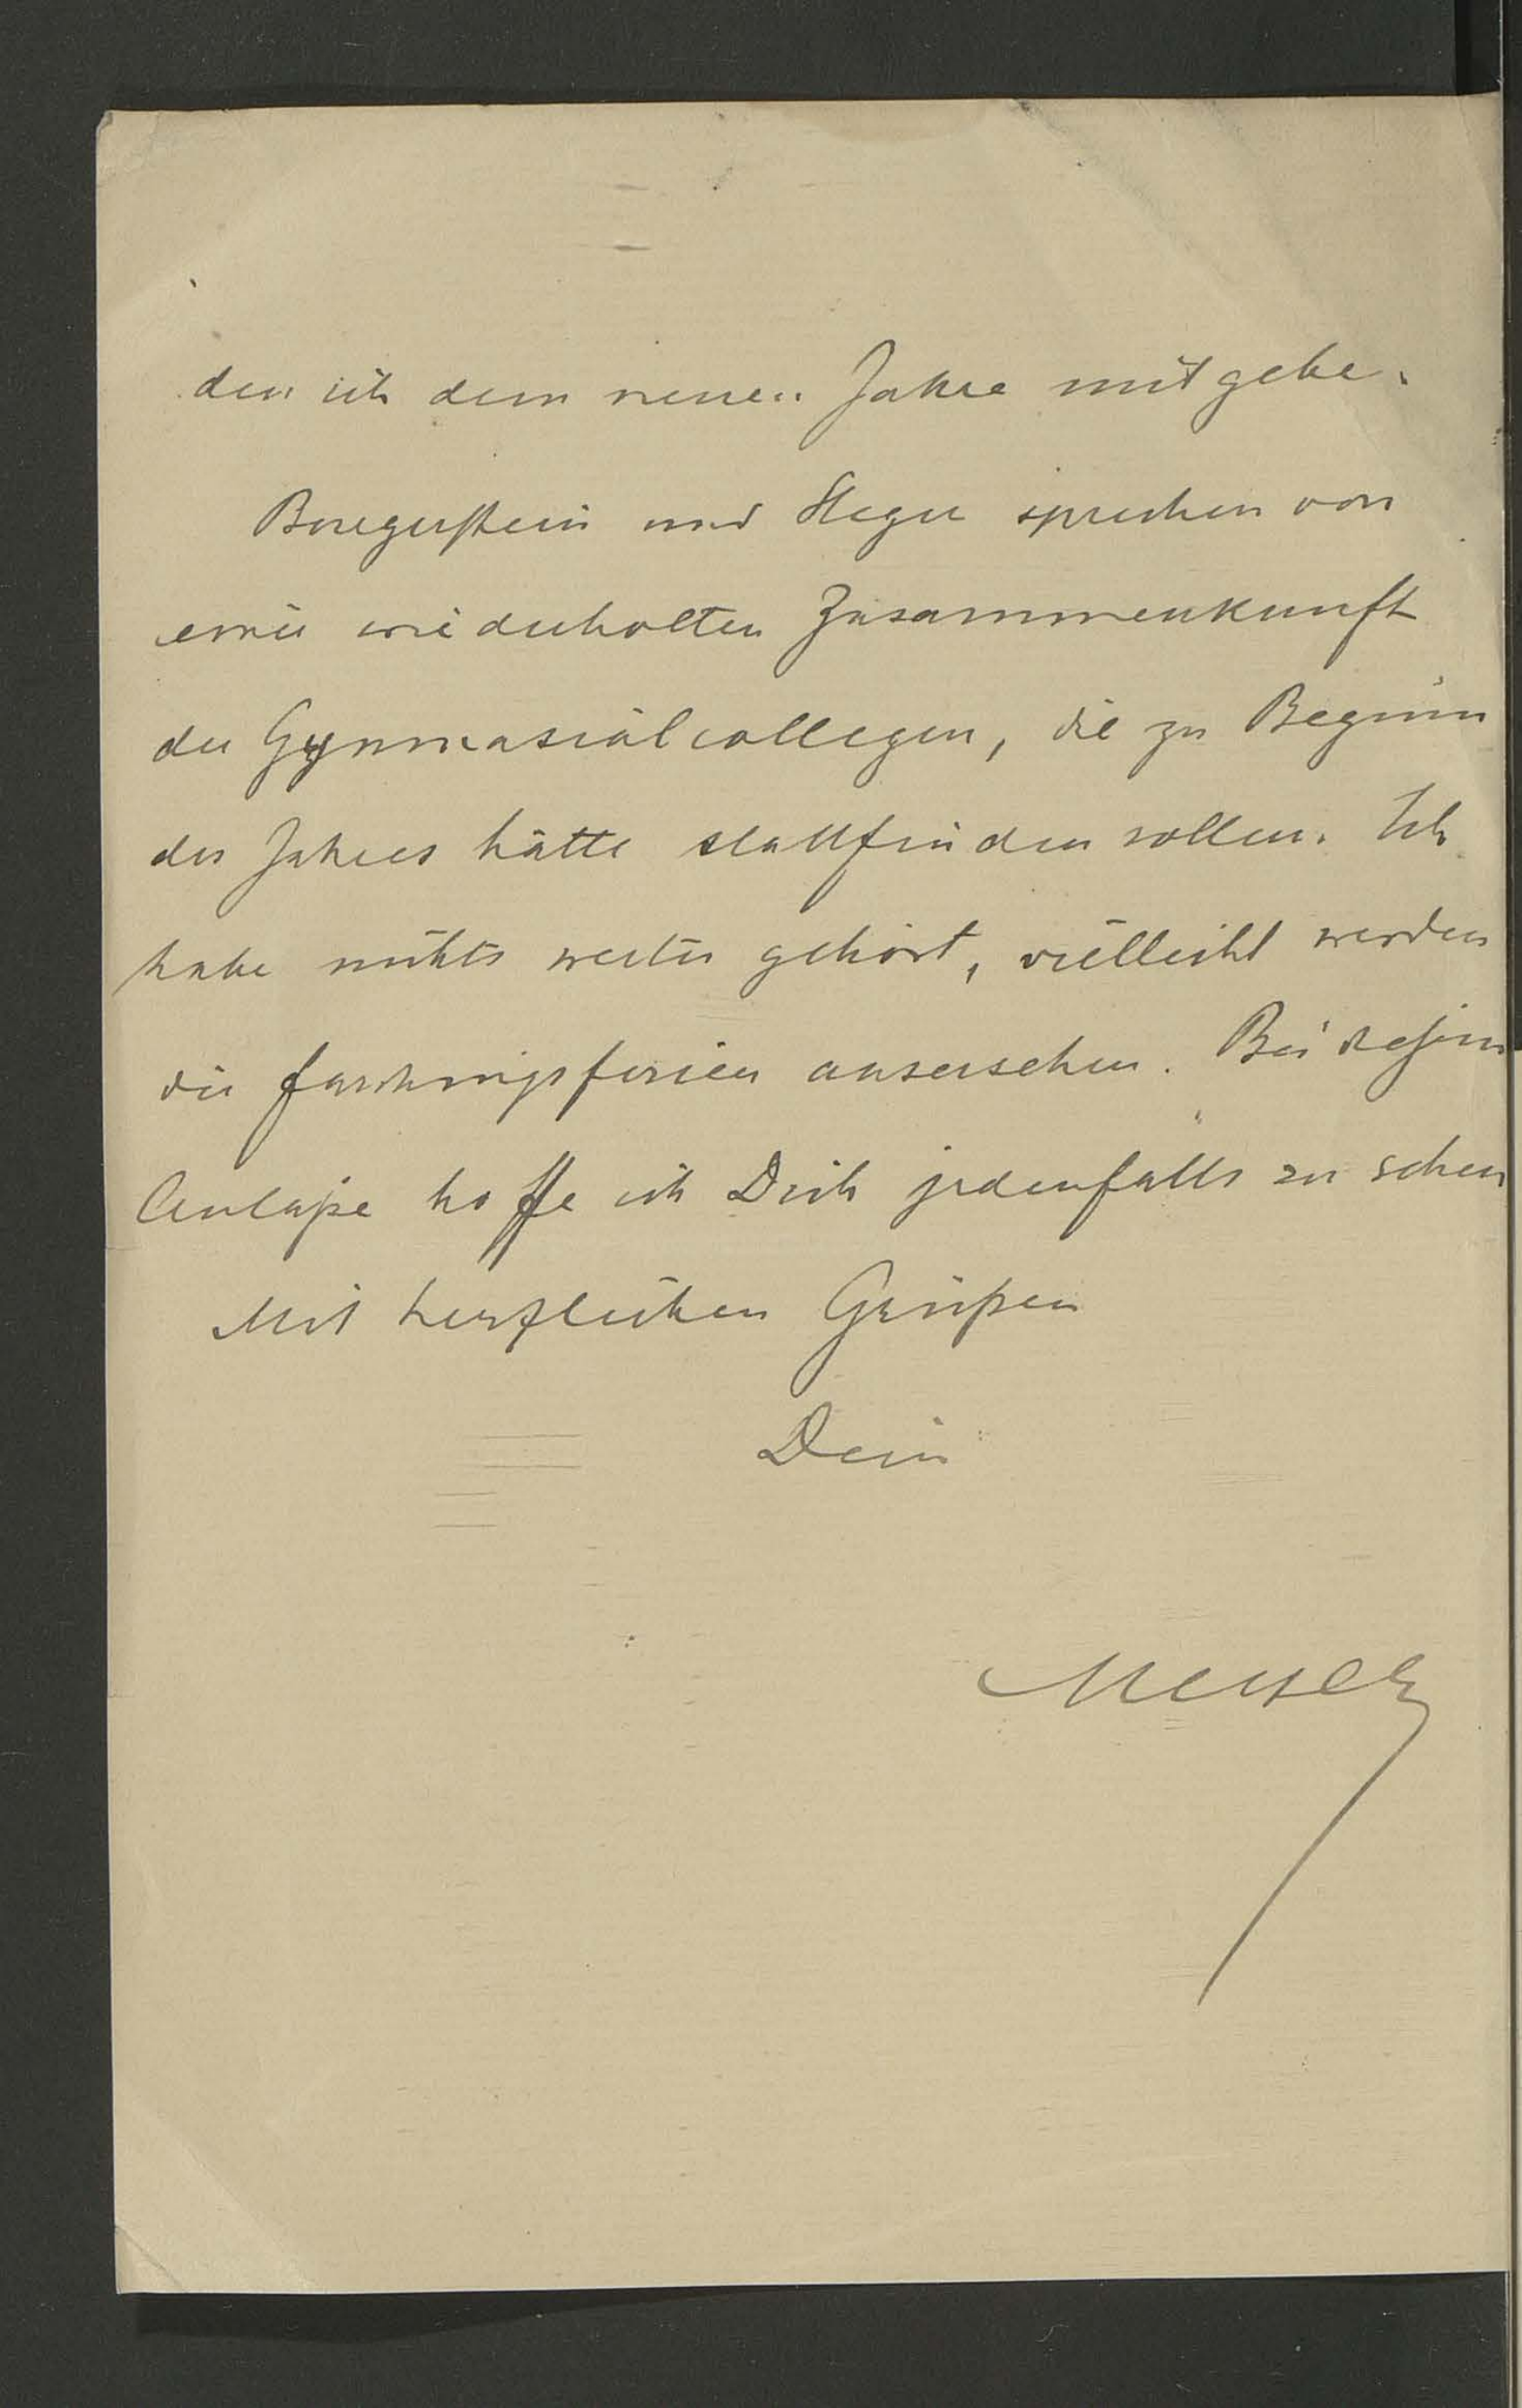 den ich dem neuen Jahre mitgebe.
Burgerstein und Steger sprechen von
einer wiederholten Zusammenkunft
der Gymnasialcollegen, die zu Beginn
des Jahres hätte stattfinden sollen. Ich
habe nichts weiter gehört, vielleicht werden
die Faschingsferien ausersehen. Bei diesem
Anlaße hoffe ich Dich jedenfalls zu sehen
Mit herzlichen Grüßen
Dein